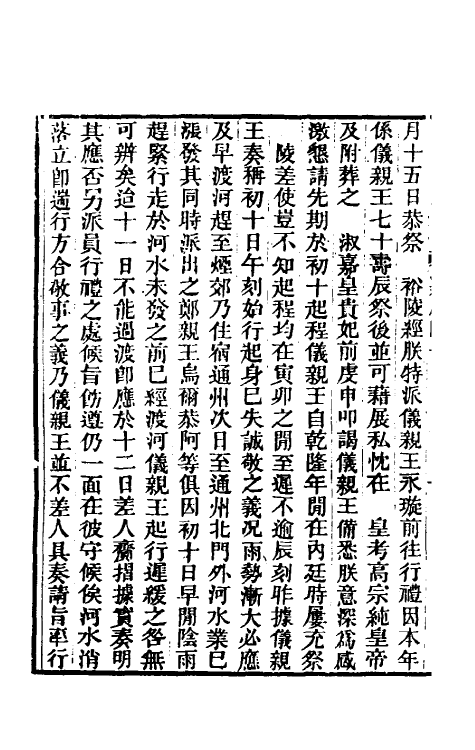 月十五日恭祭　裕陵經朕特派儀親王永璇前往行禮因本年
係儀親王七十壽辰祭後並可藉展私忱在　皇考高宗純皇帝
及附葬之　淑嘉皇貴妃前虔申叩謁儀親王備悉朕意深爲感
激懇請先期於初十起程儀親王自乾隆年閒在內廷時屢充祭
　陵差使豈不知起程均在寅卯之閒至遲不逾辰刻昨據儀親
王奏稱初十日午刻始行起身已失誠敬之義况雨勢漸大必應
及早渡河趕至煙郊乃住宿通州次日至通州北門外河水業已
漲發其同時派出之鄭親王烏爾恭阿等俱因初十日早閒陰雨
趕緊行走於河水未發之前已經渡河儀親王起行遲緩之咎無
可辨矣迨十一日不能過渡卽應於十二日差人齎摺據實奏明
其應否另派員行禮之處候旨飭遵仍一面在彼守候俟河水消
落立卽遄行方合敬事之義乃儀親王並不差人具奏請旨率行